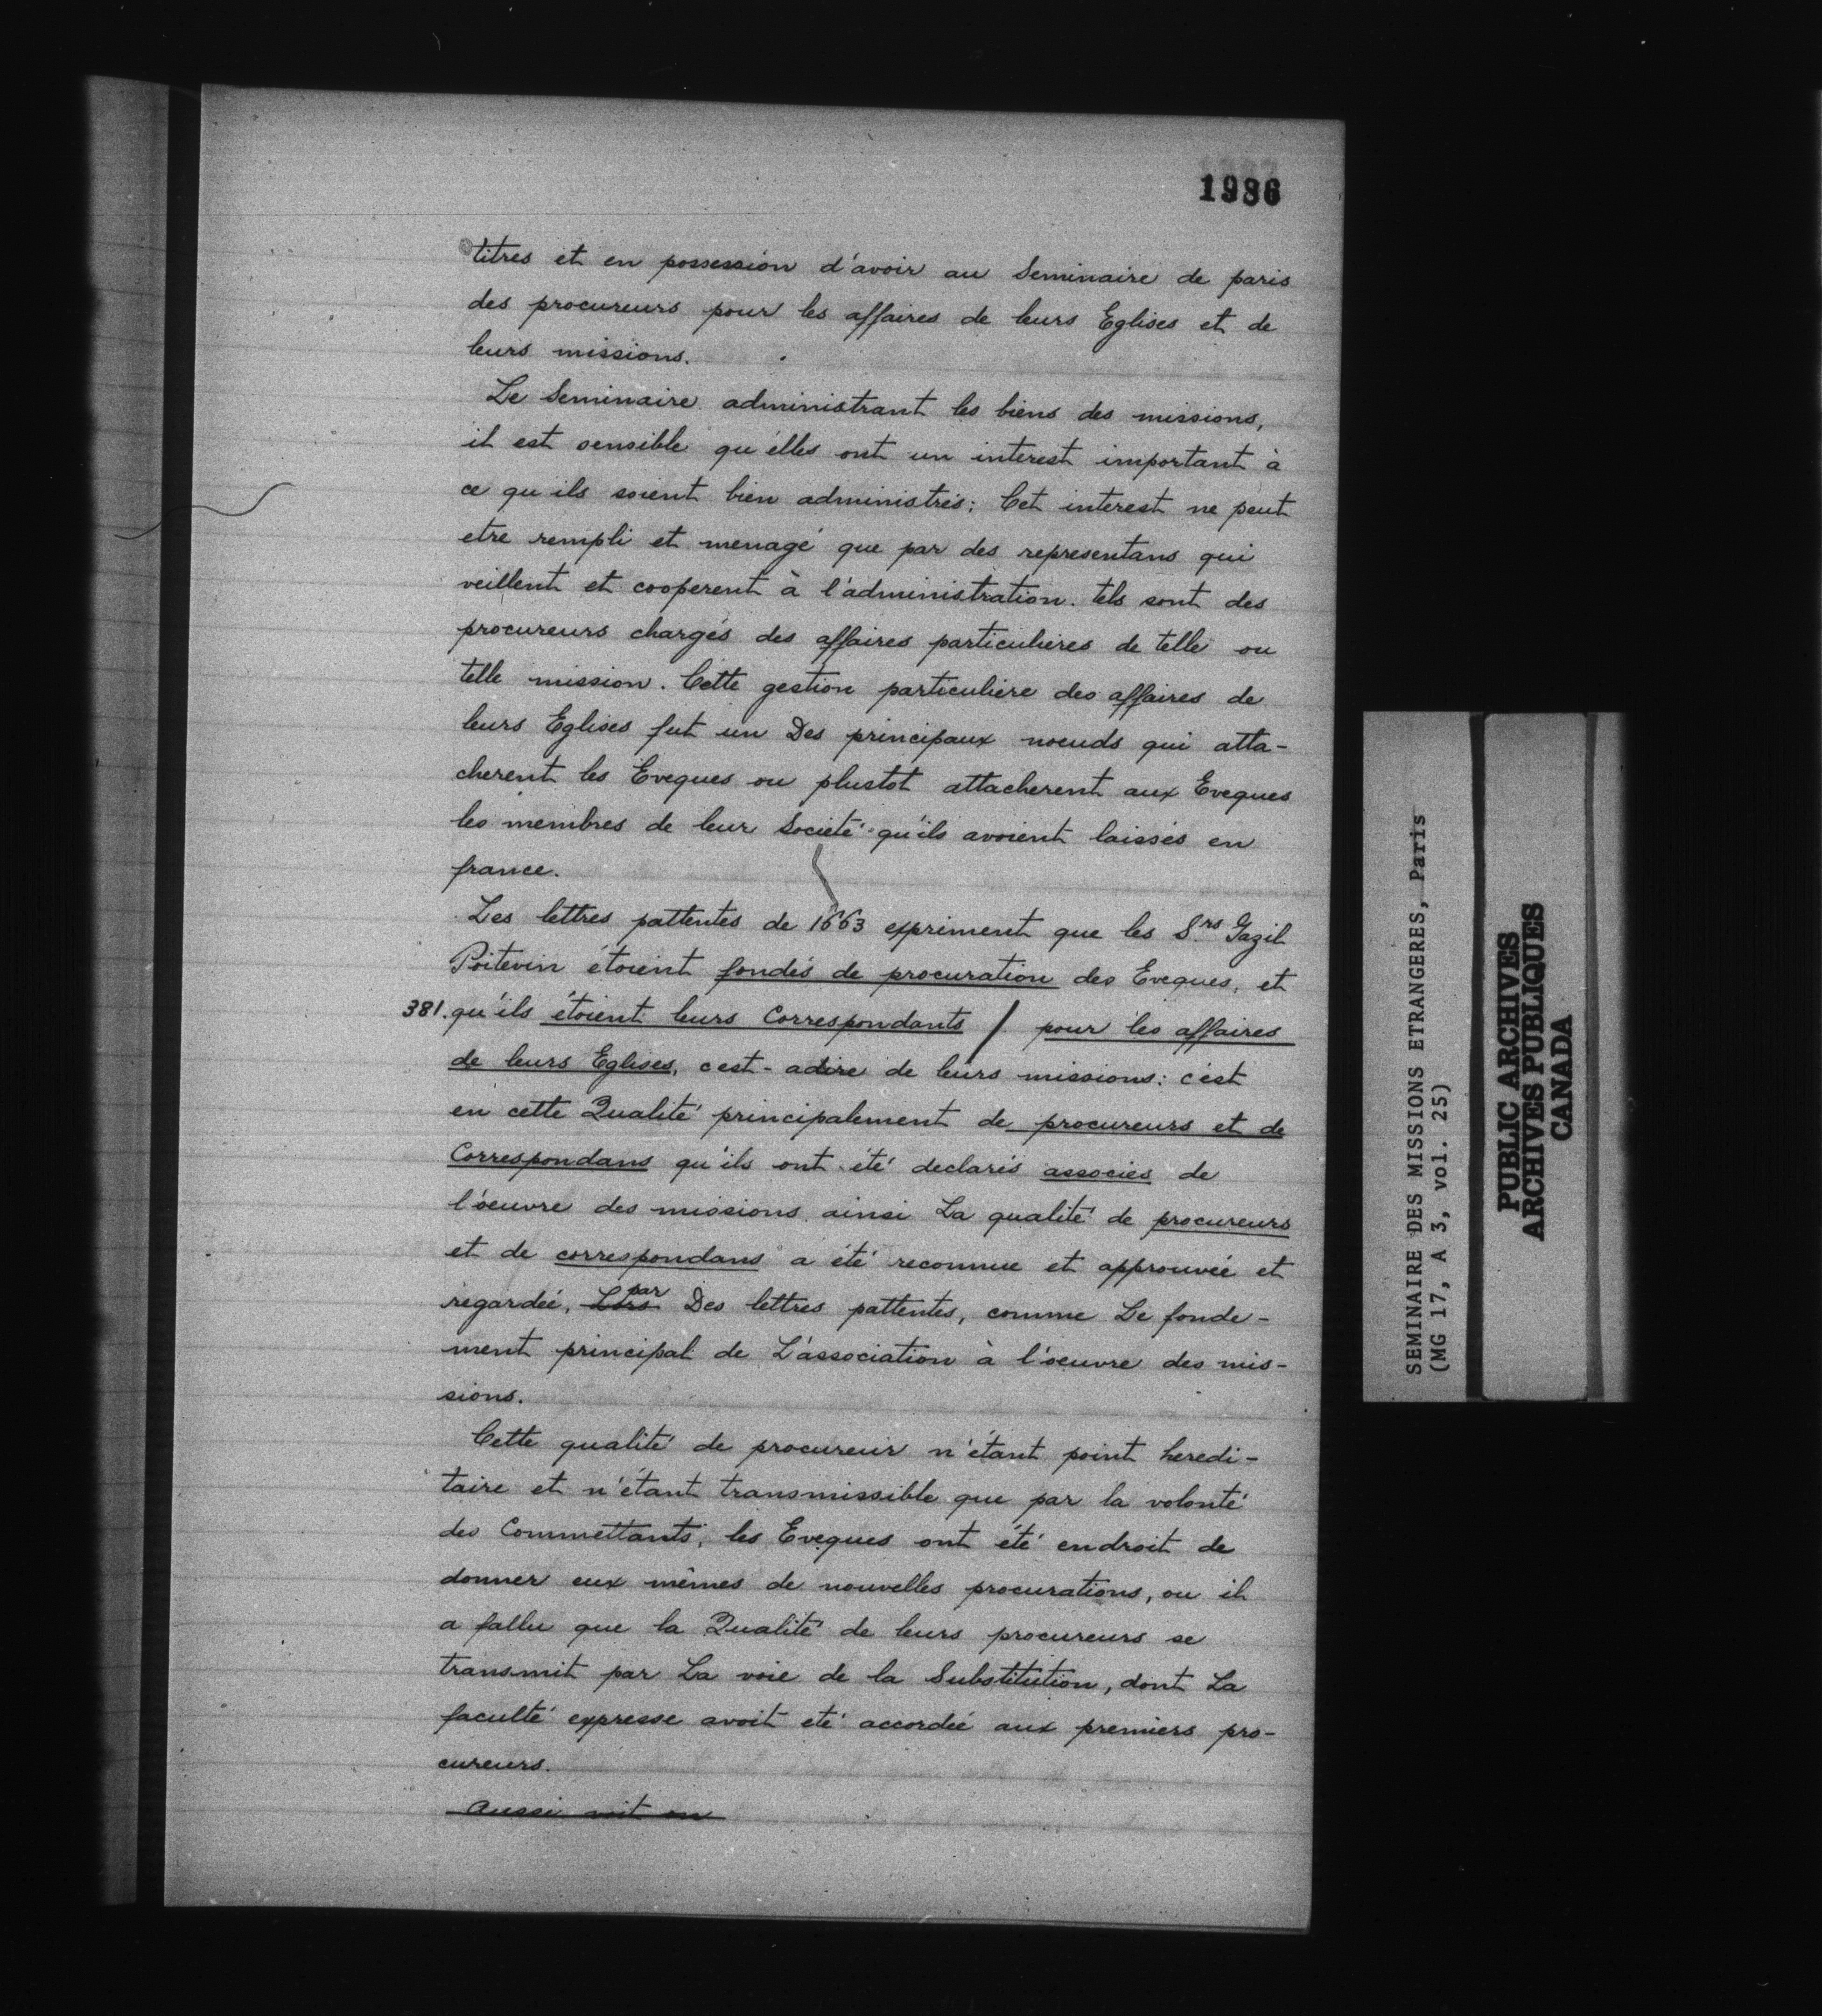 1986
titres et en possession d'avoir au Seminaire de paris
des procureurs pour les affaires de leurs Eglises et de
leurs missions.
Le Seminaire administrant les biens des missions,
il est sensible qu'elles ont un interest important à
ce qu'ils soient bien administrés; Cet interest ne peut
etre rempli et menagé que par des representans qui
veillent et cooperent à l'administration. tels sont des
procureurs chargés des affaires particulieres de telle ou
telle mission. Cette gestion particuliere des affaires de
leurs Eglises fut un Des principaux noeuds qui atta-
cherent les Eveques ou plustot attacherent aux Eveques
les membres de leur Societé qu'ils avoient laissés en
france.
Les lettres pattentes de 1663 expriment que les Srs Gazil
Poitevin étoient fondés de procuration des Eveques, et
381. qu'ils étoient leurs Correspondants / pour les affaires
de leurs Eglises, c'est-adire de leurs missions: c'est
en cette Qualité principalement de procureurs et de
Correspondans qu'ils ont été declarés associés de
l'oeuvre des missions. ainsi La qualité de procureurs
et de correspondans a été reconnue et approuvée et
regardée, par Des lettres pattentes, comme Le fonde-
ment principal de L'association à l'oeuvre des mis-
sions.
Cette qualité de procureur n'étant point heredi-
taire et n'étant transmissible que par la volonté
des Commettants, les Eveques ont été endroit de
donner eux mêmes de nouvelles procurations, ou il
a fallu que la Qualité de leurs procureurs se
transmit par La voie de la Substitution, dont La
faculté expresse avoit eté accordée aux premiers pro-
cureurs.
Aussi voit on
SEMINAIRE DES MISSIONS ETRANGERES, Paris
(MG 17, A 3, vol. 25)
PUBLIC ARCHIVES
ARCHIVES PUBLIQUES
CANADA